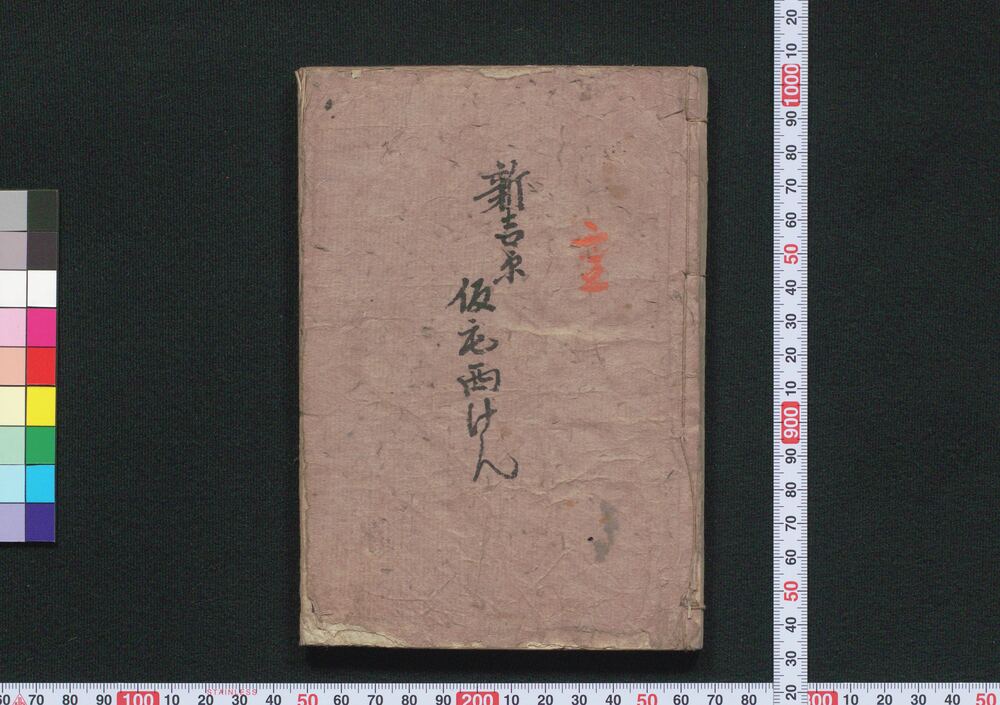 新吉原
仮宅西けん
20
10
1000
90
80
70
60
50
40
30
20
10
900
90
80
70
60
50
40
30
20
70 80 90 100 10 20 30 40 50 60 70 80 90 200 10 20 30 40 50 60 70 80 00 10 20 30 40 50
STAINLESS